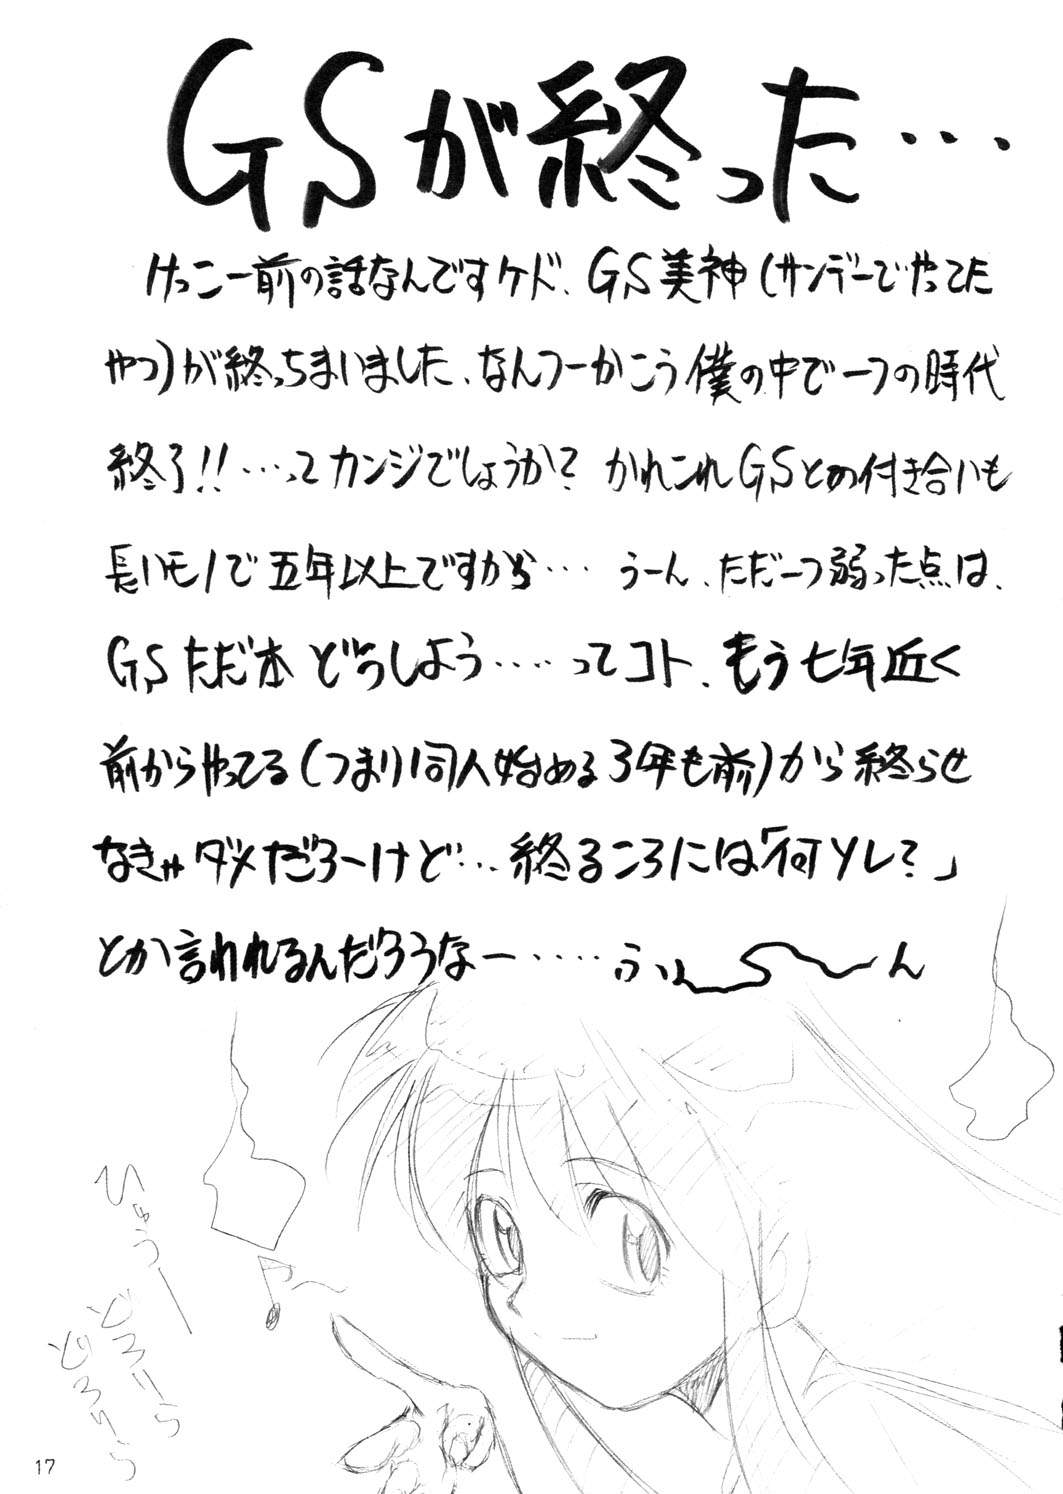 GSが終った…
けっこー前の話なんですケド、GS美神(サンデーでやってた
やつ)が終っちまいました、なんつーかこう僕の中で一つの時代
終了!!…ってカンジでしょうか? かれこれGSとの付き合いも
長いモノで五年以上ですから… うーん、ただ一つ弱った点は、
GSただ本どうしよう‥‥ってコト、もう七年近く
前からやってる(つまり同人始める3年も前)から終らせ
なきゃダメだろーけど…終るころには「何ソレ?」
とか言われるんだろうなー‥‥‥ふぃ〜〜ん
ひゅうー
どろりら
どろりら
17